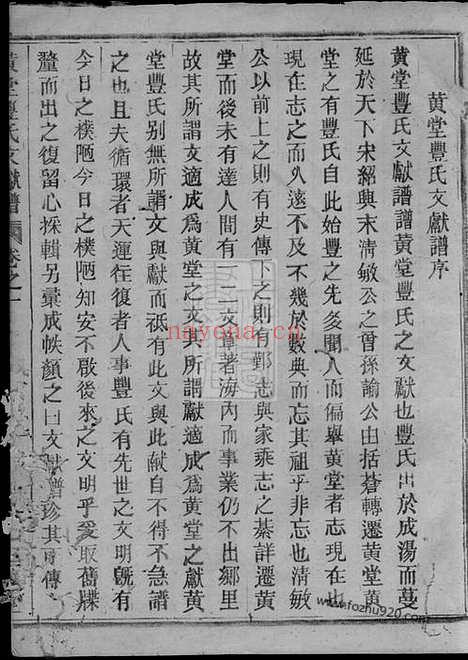 黃堂豐氏文獻譜序
黃堂豐氏文獻譜譜黃堂豐氏之文獻也豐氏出於成湯而蔓
延於天下宋紹興末清敏公之曾孫諭公由括蒼轉遷黃堂黃
堂之有豐氏自此始豐之先多聞人而偏舉黃堂者志現在也
現在志之而久遠不及不幾於數典而忘其祖乎非忘也清敏
公以前上之則有史傳下之則有鄞志與家乘志之綦詳遷黃
堂而後未有達人間有一二文章著海內而事業仍不出鄉里
故其所謂文適成爲黃堂之文其所謂獻適成爲黃堂之獻黃
堂豐氏別無所謂文與獻而祇有此文與此獻自不得不急譜
之也且夫循環者天運往復者人事豐氏有先世之文明旣有
今日之樸陋今日之樸陋知安不啟後來之文明乎爰取舊牒
釐而出之復留心採輯另彙成帙顏之曰文獻譜珍其傳
黃堂豐氏文獻譜 卷之一
nayona.cn
www.mofozhu920.com